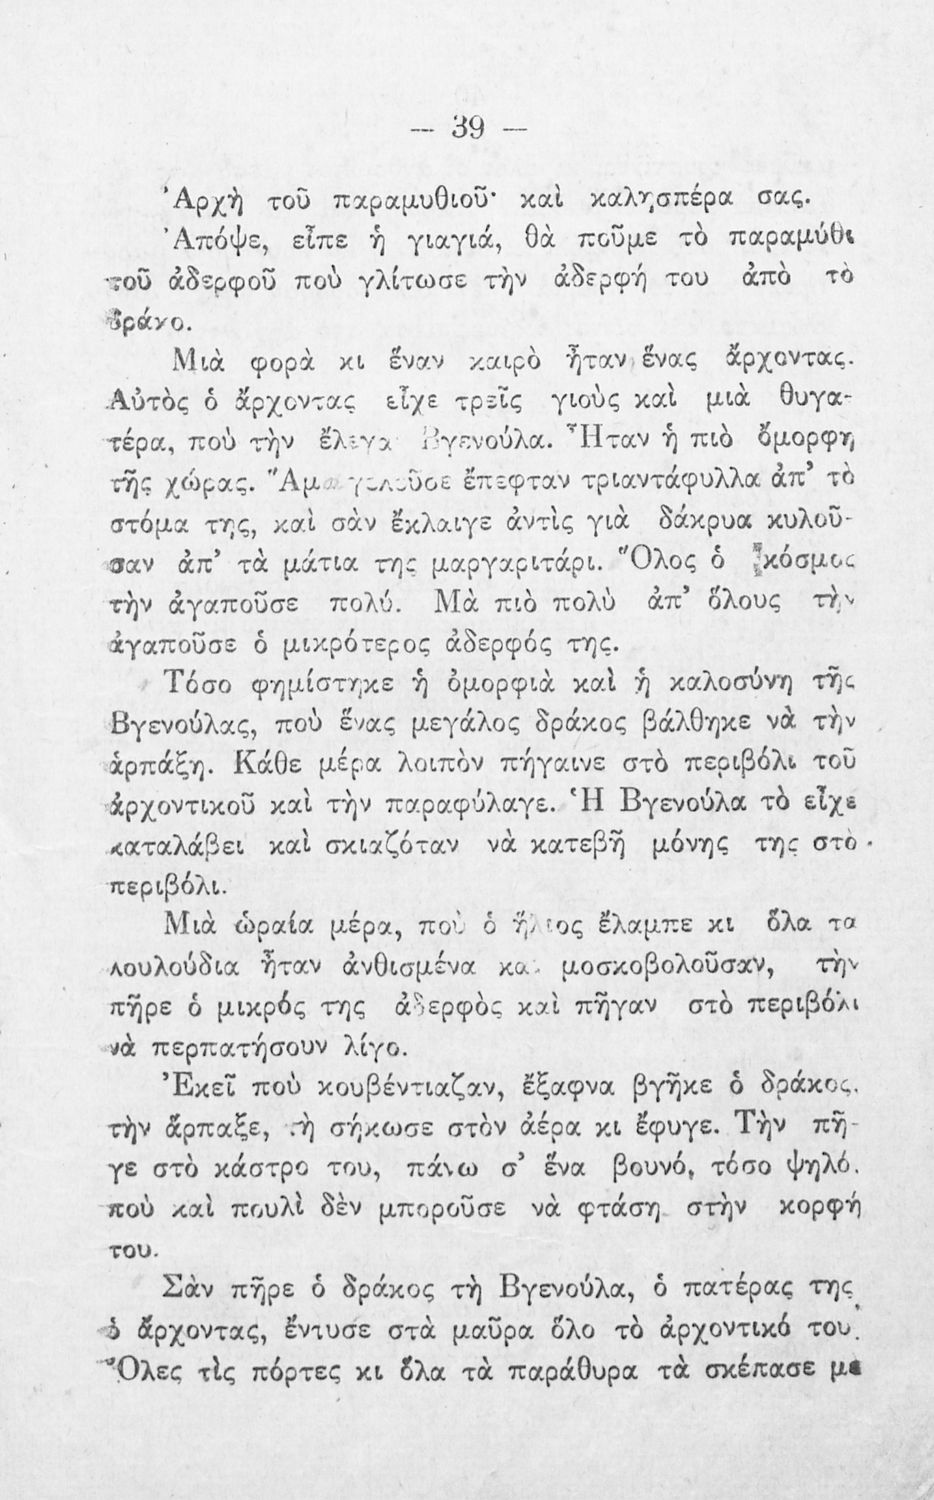 — 39 —
Ἀρχὴ τοῦ παραμυθιοῦ· καὶ καλησπέρα σας.
Ἀπόψε, εἶπε ἡ γιαγιά, θὰ ποῦμε τὸ παραμύθι
τοῦ ἀδερφοῦ ποὺ γλίτωσε τὴν ἀδερφή του ἀπὸ τὸ
δράκο.
Μιὰ φορὰ κι ἕναν καιρὸ ἦταν ἕνας ἄρχοντας.
Αὐτὸς ὁ ἄρχοντας εἶχε τρεῖς γιοὺς καὶ μιὰ θυγα-
τέρα, ποὺ τὴν ἔλεγα Βγενούλα. Ἦταν ἡ πιὸ ὄμορφη
τῆς χώρας. Ἅμα γελοῦσε ἔπεφταν τριαντάφυλλα ἀπ’ τὸ
στόμα της, καὶ σὰν ἔκλαιγε ἀντὶς γιὰ δάκρυα κυλοῦ-
σαν ἀπ’ τὰ μάτια της μαργαριτάρι. Ὅλος ὁ κόσμος
τὴν ἀγαποῦσε πολύ. Μὰ πιὸ πολὺ ἀπ’ ὅλους τὴν
ἀγαποῦσε ὁ μικρότερος ἀδερφός της.
Τόσο φημίστηκε ἡ ὀμορφιὰ καὶ ἡ καλοσύνη τῆς
Βγενούλας, ποὺ ἕνας μεγάλος δράκος βάλθηκε νὰ τὴν
ἁρπάξη. Κάθε μέρα λοιπὸν πήγαινε στὸ περιβόλι τοῦ
ἀρχοντικοῦ καὶ τὴν παραφύλαγε. Ἡ Βγενούλα τὸ εἶχε
καταλάβει καὶ σκιαζόταν νὰ κατεβῆ μόνης της στὸ
περιβόλι.
Μιὰ ὡραία μέρα, ποὺ ὁ ἥλιος ἔλαμπε κι ὅλα τα
λουλούδια ἦταν ἀνθισμένα καὶ μοσκοβολοῦσαν, τὴν
πῆρε ὁ μικρός της ἀδερφὸς καὶ πῆγαν στὸ περιβόλι
νὰ περπατήσουν λίγο.
Ἐκεῖ ποὺ κουβέντιαζαν, ἔξαφνα βγῆκε ὁ δράκος,
τὴν ἅρπαξε, τὴ σήκωσε στὸν ἀέρα κι ἔφυγε. Τὴν πῆ-
γε στὸ κάστρο του, πάνω σ’ ἕνα βουνό, τόσο ψηλό,
ποὺ καὶ πουλὶ δὲν μποροῦσε νὰ φτάση στὴν κορφή
του.
Σὰν πῆρε ὁ δράκος τὴ Βγενούλα, ὁ πατέρας της
ὁ ἄρχοντας, ἔντυσε στὰ μαῦρα ὅλο τὸ ἀρχοντικό του.
Ὅλες τὶς πόρτες κι ὅλα τὰ παράθυρα τὰ σκέπασε με